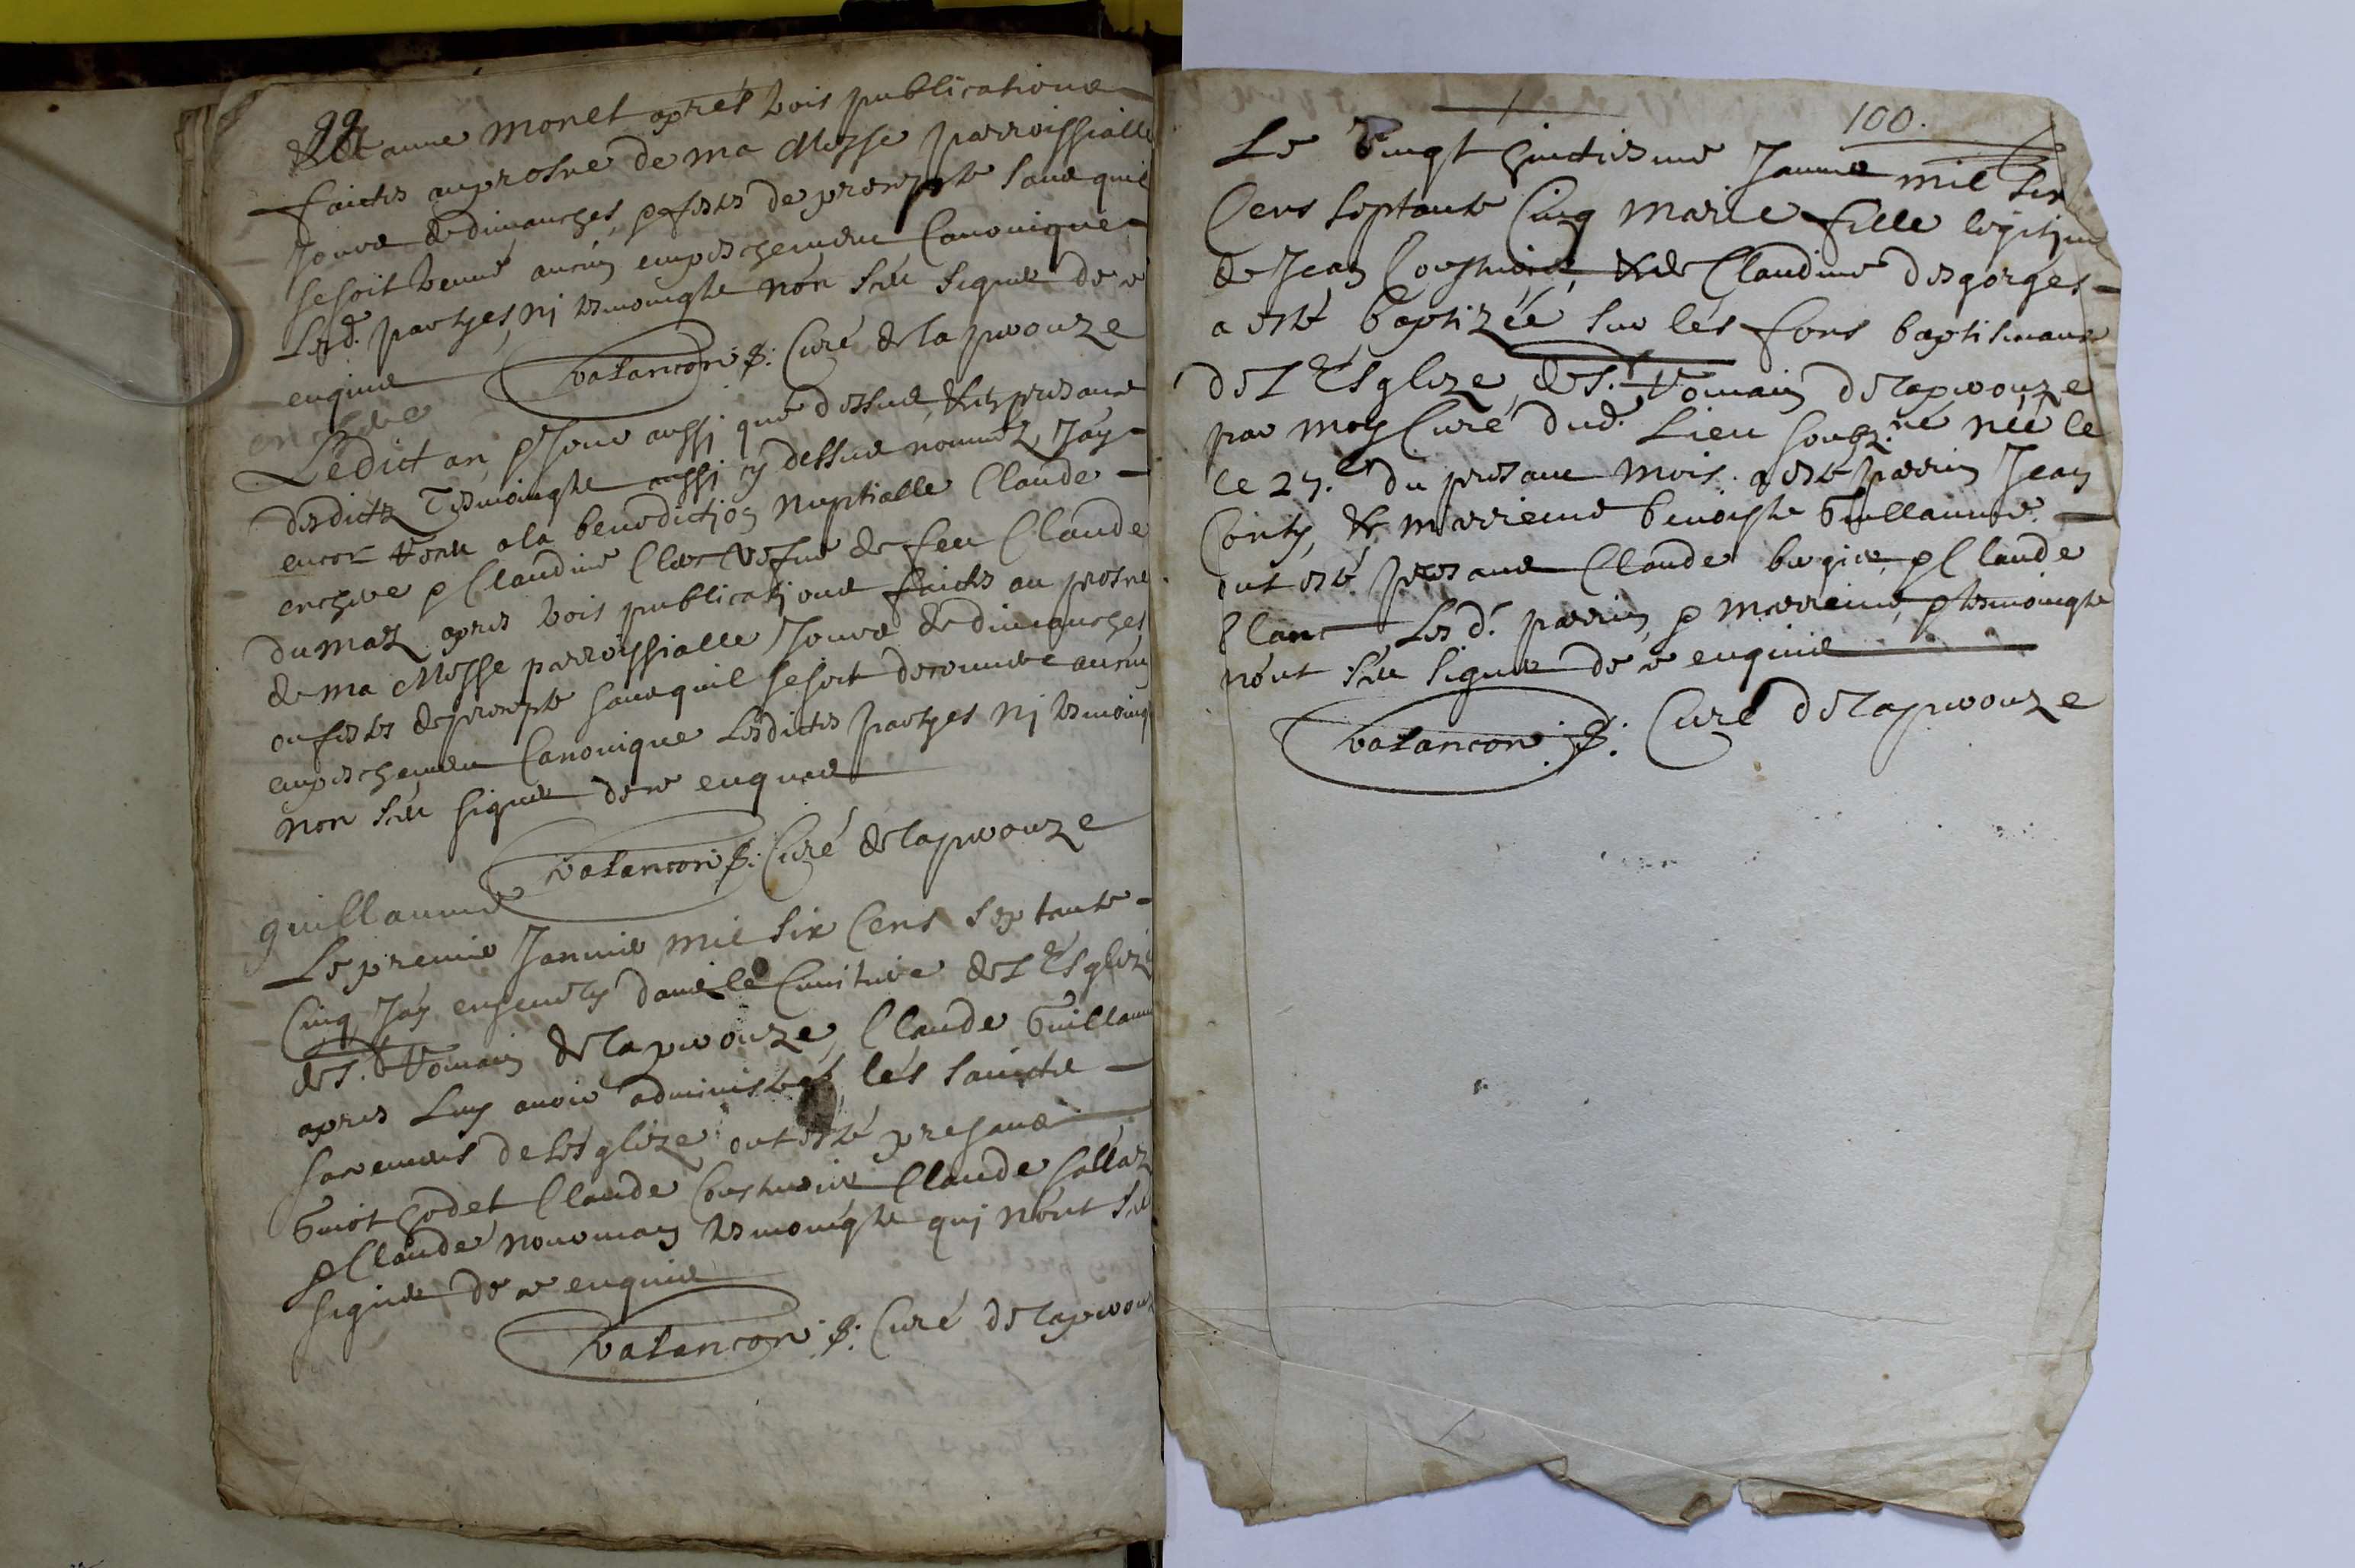 99
& anne monet aprés trois publications
faictes au prosne de ma Messe parroissialle
Jours de dimanches, & festes de precepte sans quil
se soit trouvé aucun empeschement Canonique
Lesd. partyes, nj tesmoingts nón sceu signer de ce
enquis
Valancon p: Curé de la perouze
Lédict an, & Jour aussj que dessus, & en presance
desdicts Tesmoingts aussj cy dessus nommez Jáy
encor receu a la benediction nuptialle Claude
& Claudine Clerc vefve de feu Claude
dumaz apres trois publications faictes au prosne
de ma Messe parroissialle Jours de dimanches
ou festes de precepte sans quil se soit descouvert aucun
empeschement Canonique Lesdictes partyes nj tesmoing
non sceu signer de ce enquis
Valancon p: Curé de la perouze
guillaume
Le premier Janvier mil six Cens septante
Cinq Jáy ensevely dans le Cimitiere de L'Esglize
de St. Romain de la perouze, Claude Guillaume
apres Luy avoir administrés, lés saincts
sacremens de L'esglize, ont esté presans
Claude Claude
& Claude tesmoingts quj nónt sceu
signer de ce enquis
Valancon p: Curé de la perouz
100.
Le vingt huictiesme Janvier mil six
Cens septante Cinq Marie fille legitime
de Jean & de Claudine desgorges
a esté baptizéé sur lés fons baptismaux
de L'Esglize, de St. Romain de la perouze
par moy Curé dud. Lieu soubz.né néé le
le 27.e du presant mois. a esté parrin Jean
& marreine benoiste Guillaume.
ont esté presans Claude & Claude
Clanc Lesd. parrin, & marreine, & tesmoingts
nónt sceu signer de ce enquis
Valancon p: Curé de la perouze